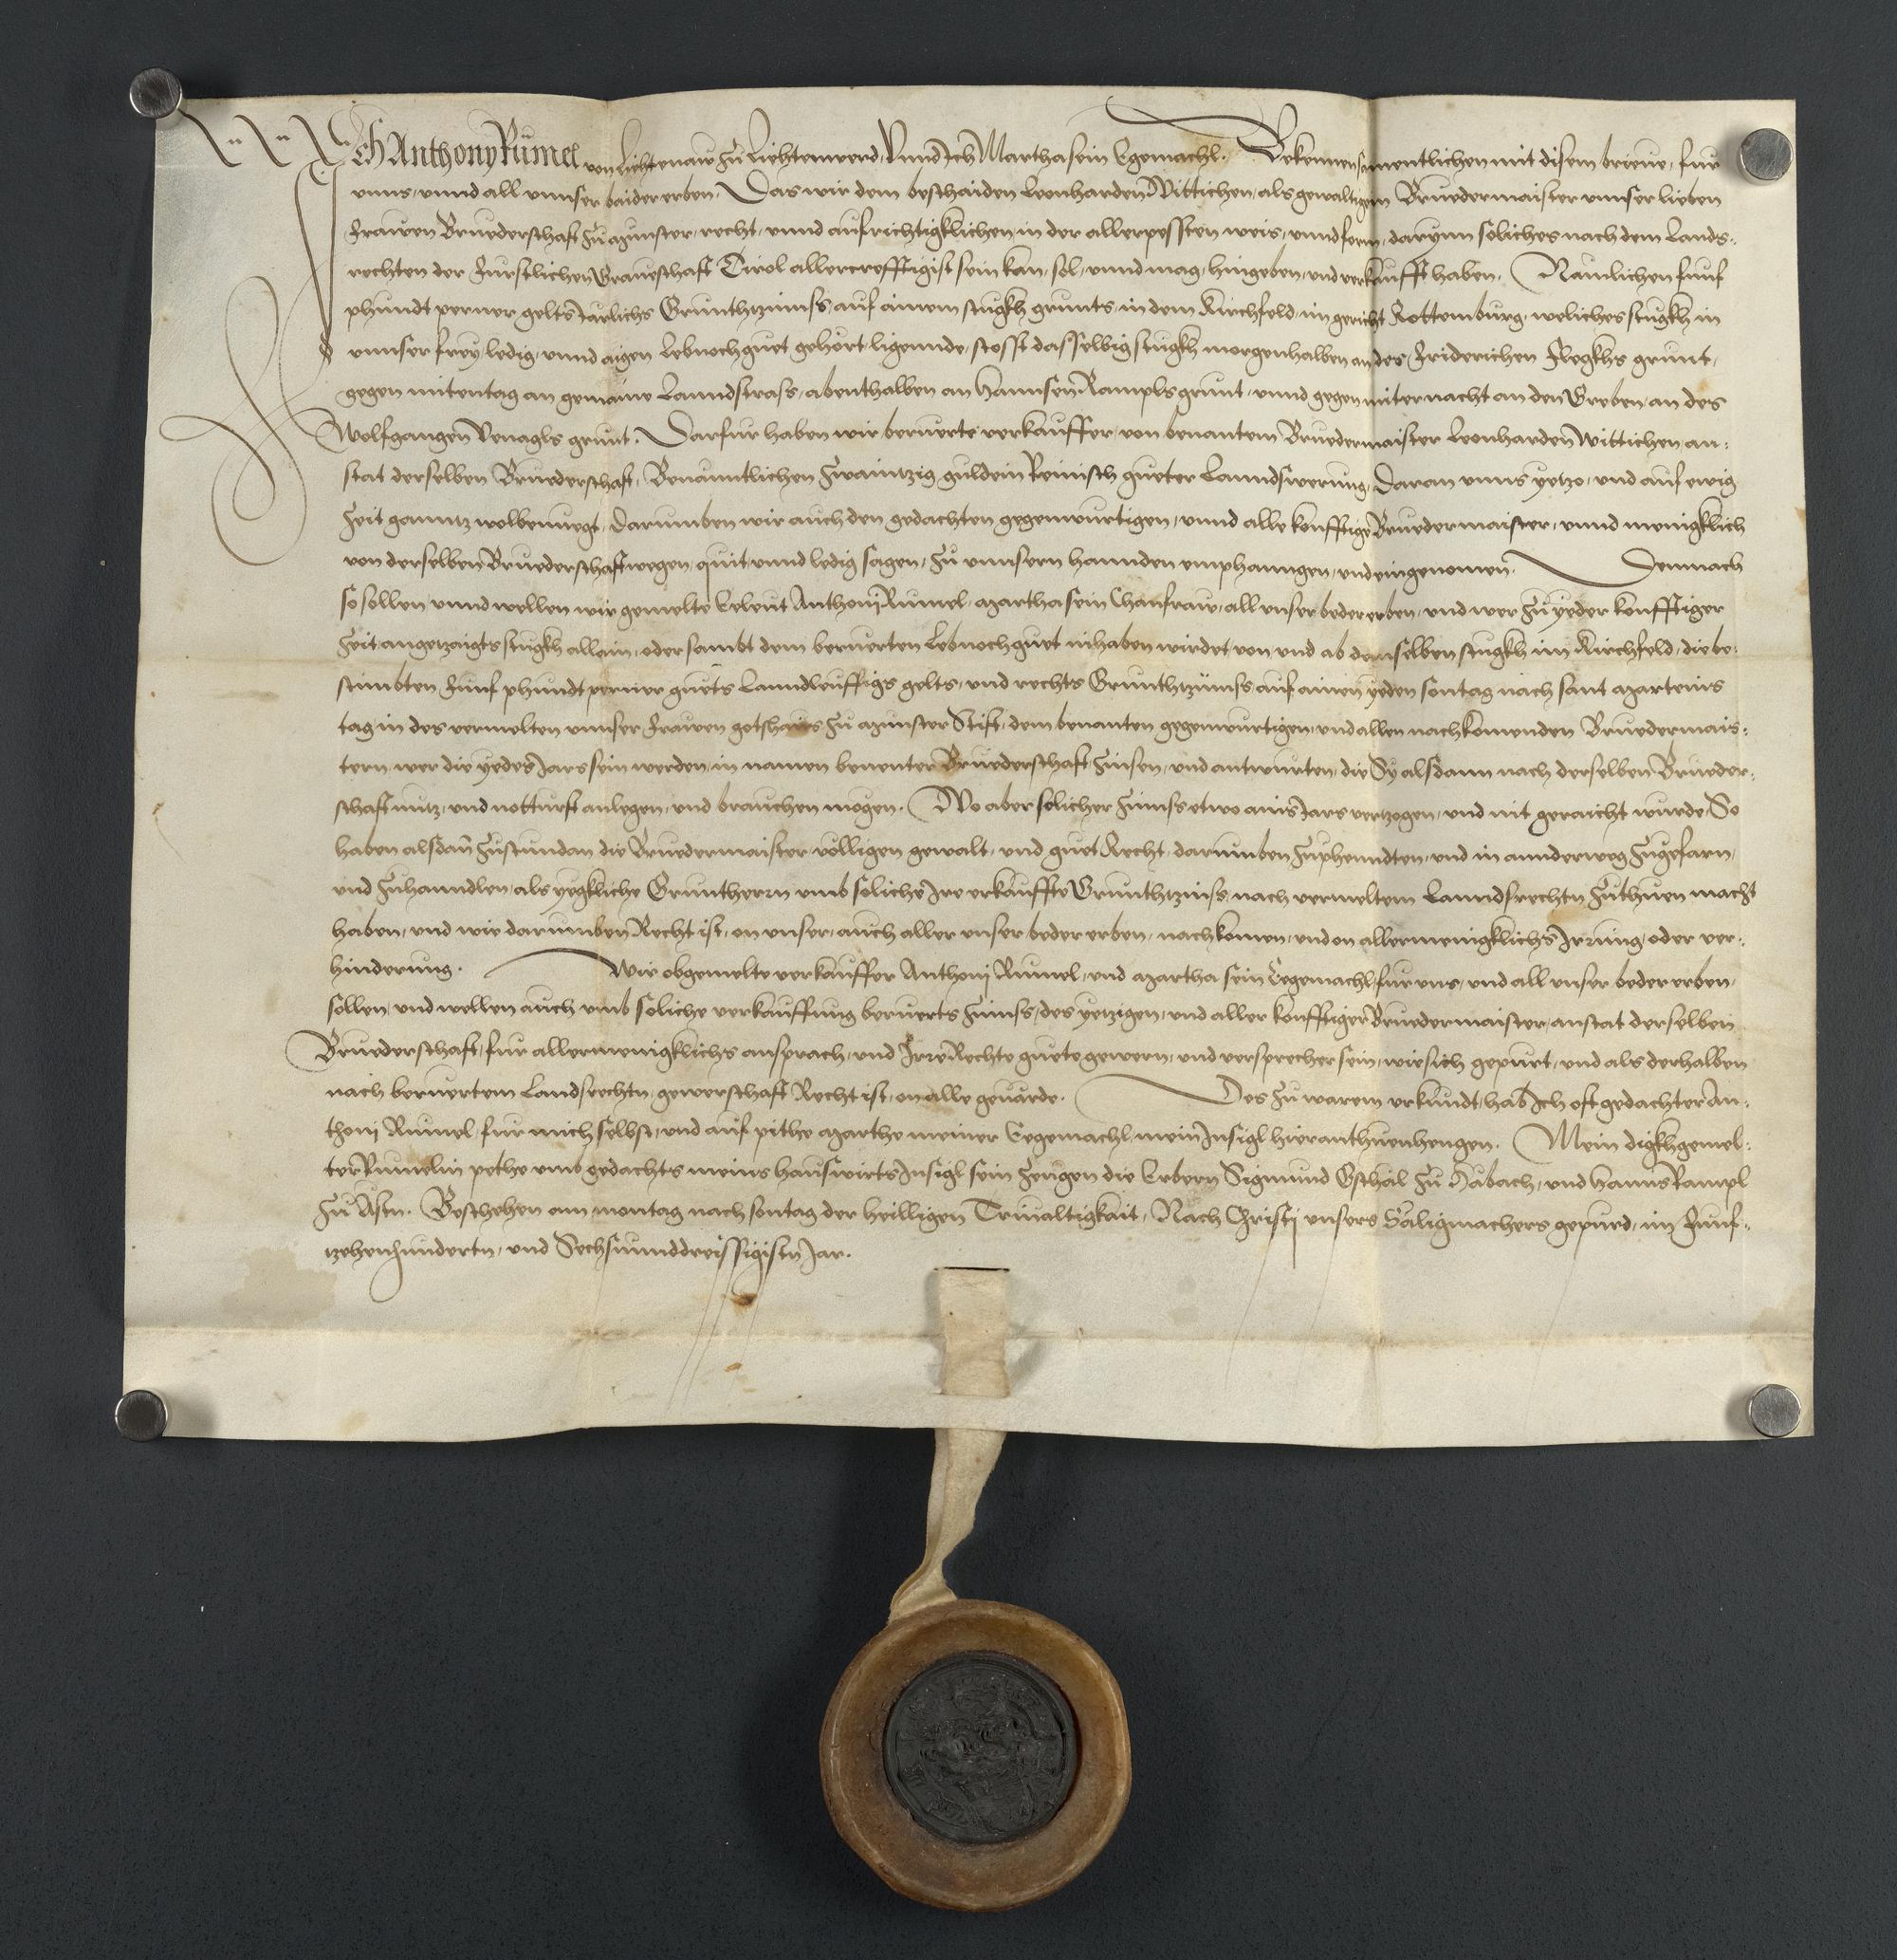 Ich Anthony Rumel von Liehtenaw zu Liehtenwerd, Vnnd Ich Martha sein Egemachl. Bekennen sementlichen mit disem brieue, fur
vnns, vnnd all vnnser baider erben. Das wir dem beschaiden Leonharden Wittichen, als gewaltigem Bruedermaister vnnser lieben
Frawen Bruederschaft zu Munster, recht, vnnd aufrichtigklichen in der allerpessten weis, vnnd form, darynn soliches nach dem Lands¬
rechten der Furstlichen Graueschaft Tirol allercrefftigist sein kan, sol, vnnd mag, hingeben, vnd verkaufft haben. Nämlichen funf
phundt perner gelts Järlichs Grunthtzinnss, auf ainem stugkh grunts, in dem Kirchfeld, im gericht Rottemburg, weliches stugkh in
vnnser frey ledig, vnnd aigen Lehnochguet gehört, ligennde, stosst dasselbig stugkh morgenhalben an des Friderichen Flegkhs grunt,
gegen mitentag an gemaine Lanndstrass, abenthalben an Hannsen Rampls grunt, vnnd gegen miternacht an den Greben, an des
Wolfgangen Venagls grunt. Darfur haben wir beruerte verkauffer, von benantem Bruedermaister Leonharden Wittichen, an¬
stat derselben Bruederschaft, Benanntlichen zwaintzig guldein Reinisch gueter Lanndswerung, Daran vnns yetzo, vnd auf ewig
zeit ganntz wolbenuegt, Darumben wir auch den gedachten gegenwurtigen, vnnd alle konfftige Bruedermaister, vnnd menigklich
von derselben Bruederschaft wegen, quit, vnnd ledig sagen, zu vnnsern hannden emphanngen, vnd eingenomen. Demnach
so sollen, vnnd wellen wir gemelte Eeleut Anthoni Rumel, Martha sein Ehanfraw, all vnser beder erben, vnd wer zu yeder konfftiger
zeit angetzaigts stugkh allain, oder sambt dem beruerten Lehnochguet inhaben wirdet, von, vnd ab demselben stugkh im Kirchfeld, die be¬
stimbten Funf phundt perner guets Lanndleuffigs gelts, vnd rechts Grunthtzinnss, auf ainen yeden sontag nach sant Marteins
tag, in des vermelten vnnser Frawen gotshaws zu Munster Stift, dem benanten gegenwurtigen, vnd allen nachkomenden Bruedermais¬
tern, wer die yedes Jars sein werden, in namen benenter Bruederschaft zinsen, vnd antwurten, die Sy alsdann nach derselben Brueder¬
schaft nutz, vnd notturft anlegen, vnd brauchen mögen. Wo aber solicher zinnss etwo ains Jars vertzogen, vnd nit geraicht wurde, So
haben alsdann zustundan die Bruedermaister völligen gewalt, vnd guet Recht, darumben zuphenndten, vnd in annder weg zugefarn,
vnd zuhanndlen, als yegkliche Gruntherrn vmb soliche Ire erkauffte Grunthtzinss, nach vermeltem Lanndsrechtn zuthuen macht
haben, vnd wie darumben Recht ist, on vnser, auch aller vnser beder erben, nachkomen, vnd on allermenigklichs Irrung, oder ver¬
hinderung. Wir obgemelte verkauffer Anthoni Rumel, vnd Martha sein Eegemachl, fur vns, vnd all vnser beder erben,
sollen, vnd wellen auch vmb soliche verkauffung beruerts zinnss, des yetzigen, vnd aller konfftiger Bruedermaister, anstat derselben
Bruederschaft, fur allermenigklichs ansprach, vnd Irre Rechte, guete gewern, vnd versprecher sein, wie sich gepurt, vnd als derhalben
nach beruertem Landsrechtn, gewerschaft Recht ist, on alle geuärde. Des zu warem vrkundt, hab Ich oft gedachter An¬
thoni Rumel, fur mich selbst, vnd auf pithe Marthe meiner Eegemachl, mein Insigl hieran thuen hengen. Mein digkhgemel¬
ter Rumelin pethe vmb gedachts meins hauswirts Insigl sein zeugen die Erbern Sigmund Gsthäl zu Habach, vnd Hanns Rampl
zu Astn. Beschehen am montag nach sontag der heilligen Triualtigkait, Nach Christj vnsers Säligmachers gepurd, im Funf¬
tzehenhundertn, vnd Sechsunnddreissigisten Jar.